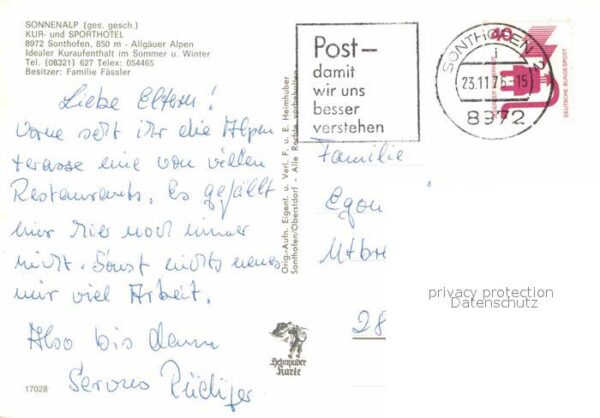 SONNENALP (ges. gesch.)
KUR- und SPORTHOTEL
8972 Sonthofen, 850 m - Allgäuer Alpen
Idealer Kuraufenthalt im Sommer u. Winter
Tel. (08321) 627 Telex: 054465
Besitzer: Familie Fässler
Liebe Eltern!
Vorne seht ihr die Alpen
terasse eine von vielen
Restaurants. Es gefällt
mir hier noch immer
nicht. Sonst nichts neues
nur viel Arbeit.
Also bis dann
Servus Rüdiger
17028
Orig.-Aufn. Eigent. u. Verl. F. u. E. Heimhuber
Sonthofen/Oberstdorf - Alle Rechte vorbehalten
Post-
damit
wir uns
besser
verstehen
SONTHOFEN 2
i
23.11.76-15
8972
40
DEUTSCHE BUNDESPOST
Familie
Egon
28
Heimhuber
Karte
privacy protection
Datenschutz